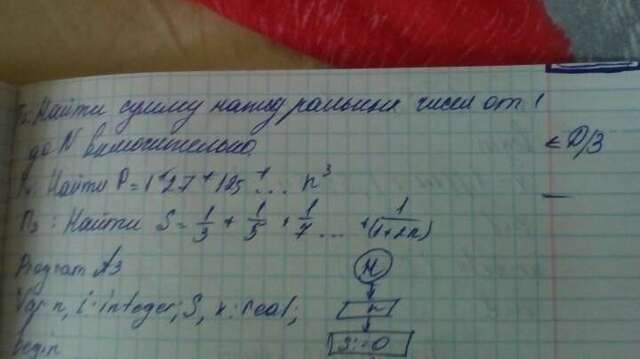 Найти сумму натуральных чисел от 1
до N включительно.
← D/З
Найти P = 1 + 27 + 125 + ... n³
П₃: Найти S = 1/3 + 1/5 + 1/7 ... + 1/(1+2n)
Program A3
Н
Var n, i: integer; S, x: real;
n
begin
S:=0